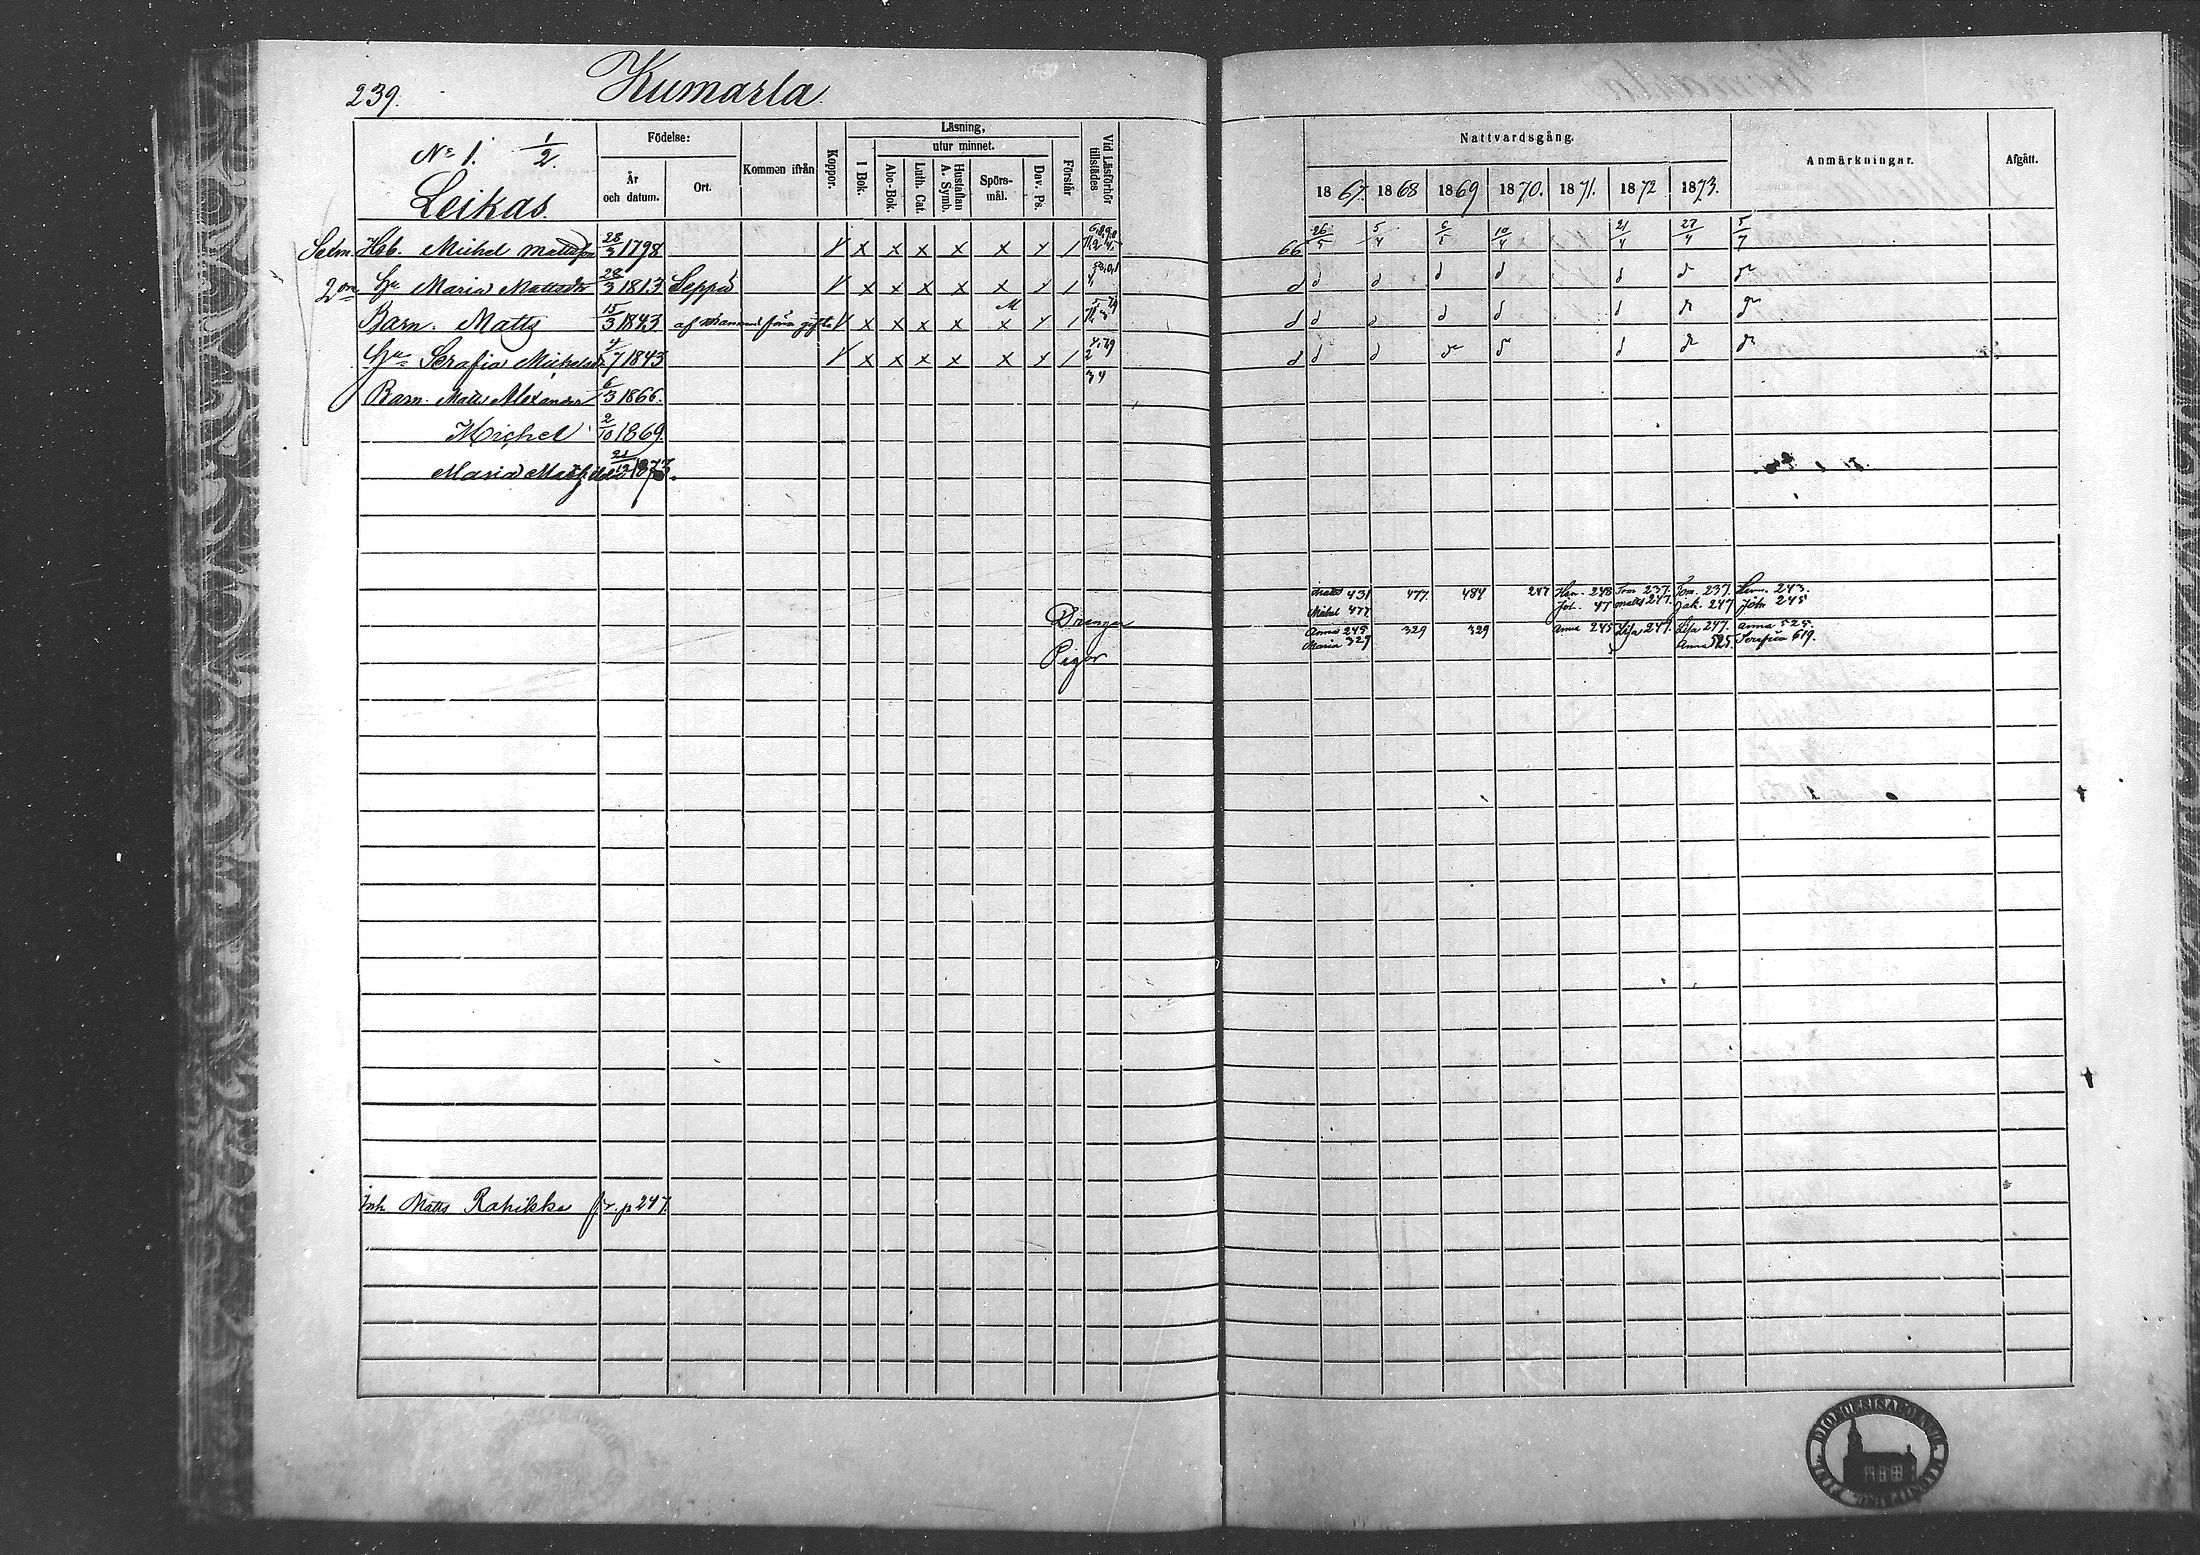 239.
Kumarla
No 1. 1/2
Leikas.
Födelse:
År och datum.
Ort.
Kommen ifrån
Koppor.
Läsning,
utur minnet.
I Bok.
Abc-Bok.
Luth. Cat.
Hustaflan A. Symb.
Spörsmål.
Dav. Ps.
Förstår
Vid Läsförhör tillstädes
Nattvardsgång.
1867. 1868 1869 1870. 1871. 1872 1873.
Anmärkningar.
Afgått.
Hsb. Michel Mattsson 28/3 1798 V x x x x x y / 66 26/5 5/4 6/5 10/4 21/4 27/4 5/7
2an Hu Maria Mattsdr 28/3 1813 Seppä V x x x x x y / d d d d d d d d
Barn. Matts 15/3 1843 V x x x x x y / d d d d d d d d
Hu Serafia Michelsdr 4/7 1843 V x x x x x y / d d d d d d d d
Barn. Matts Alexander 6/3 1866.
Michel 2/10 1869.
Maria Mathilda 21/12 1873.
Drängar
Matts 431 477 484 247 Hen. 248 Tom 237. Tom. 237. 243.
Michel 477 Joh. 47 Matts 247. Jak. 247 Joh 245
Pigor
Anna 245 329 329 Anna 245 Lisa 247. Lisa 247. Anna 525.
Maria 329 Anna 525. Serafia 619.
Inh. Matts Rahikka fr. p 247.